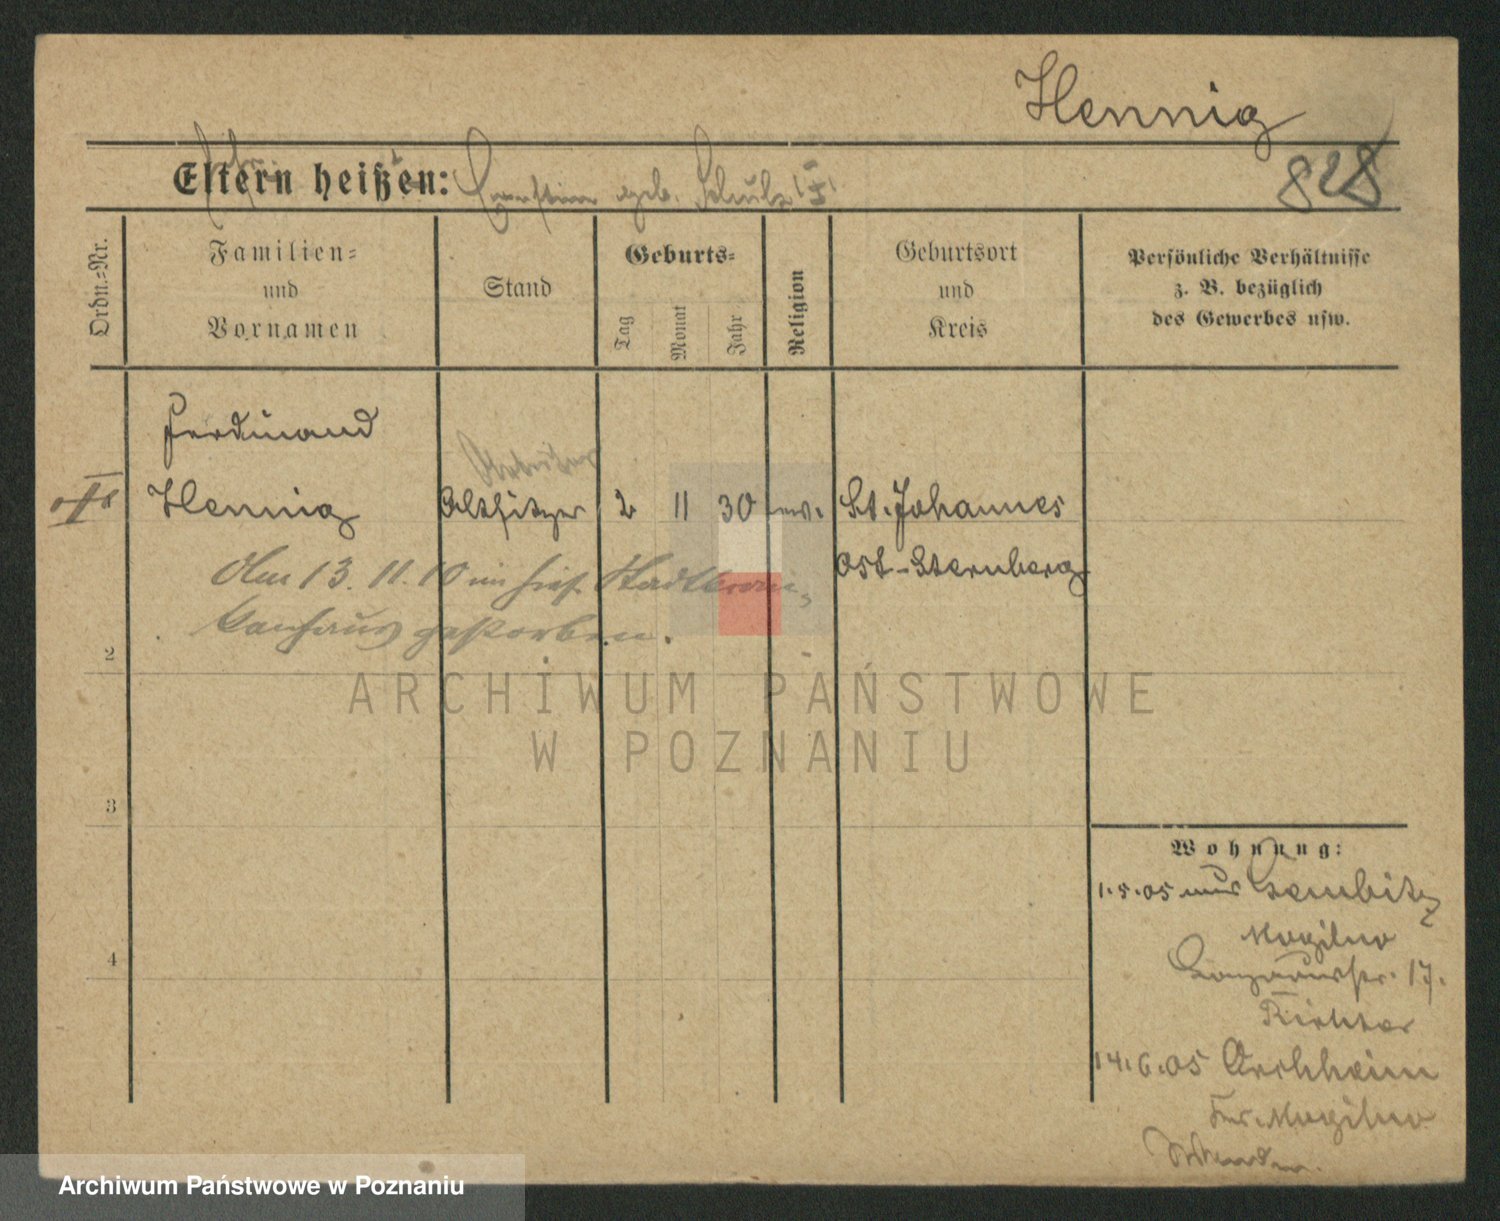 Hennig
828
Eltern heißen:
geb. Schulz
Ordn.=Nr.
Familien=
und
Vornamen
Stand
Geburts=
Tag
Monat
Jahr
Religion
Geburtsort
und
Kreis
Persönliche Verhältnisse
z. B. bezüglich
des Gewerbes usw.
Ferdinand
Arbeiter
Hennig Altsitzer 2 11 30 ev. St. Johannes
Ost-Sternberg
Am 13. 11. 10 im hies. Stadtkran-
kenhaus gestorben.
2
3
4
Wohnung:
1.5.05 aus Gembitz
Mogilno
17.
Richter
14.6.05
Krs. Mogilno
ARCHIWUM PAŃSTWOWE
W POZNANIU
Archiwum Państwowe w Poznaniu